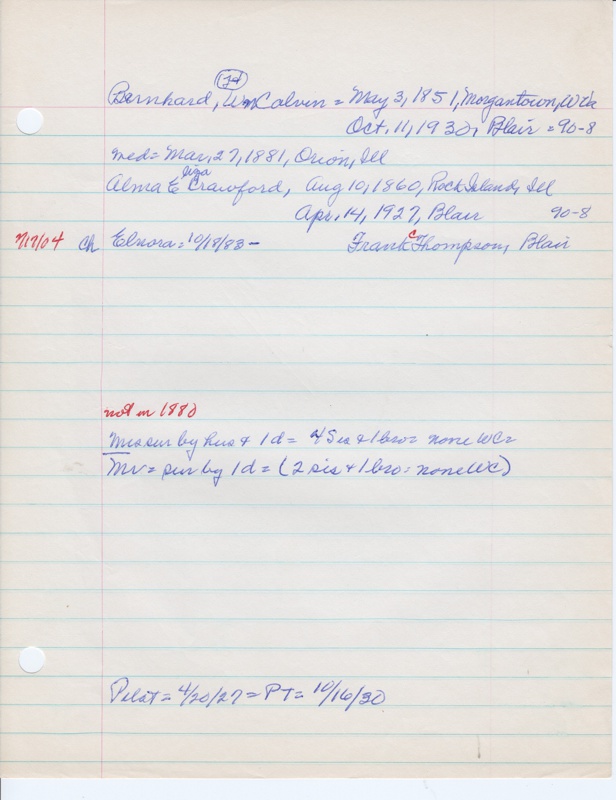 (74)
Bernhard, Wm Calvin = May 3, 1851, Morgantown, W Va
Oct. 11, 1930, Blair = 90-8
med = Mar. 27, 1881, Orion, Ill
Alma Eliza Crawford, Aug 10, 1860, Rock Island, Ill
Apr. 14, 1927, Blair 90-8
7/17/04 Ch Elnora = 10/18/83 - Frank C Thompson, Blair
not in 1880
Mrs sur by hus & 1 d = 4 sis & 1 bro = none WC =
Mr = sur by 1 d = (2 sis & 1 bro = none WC)
Pilot = 4/20/27 = PT = 10/16/30